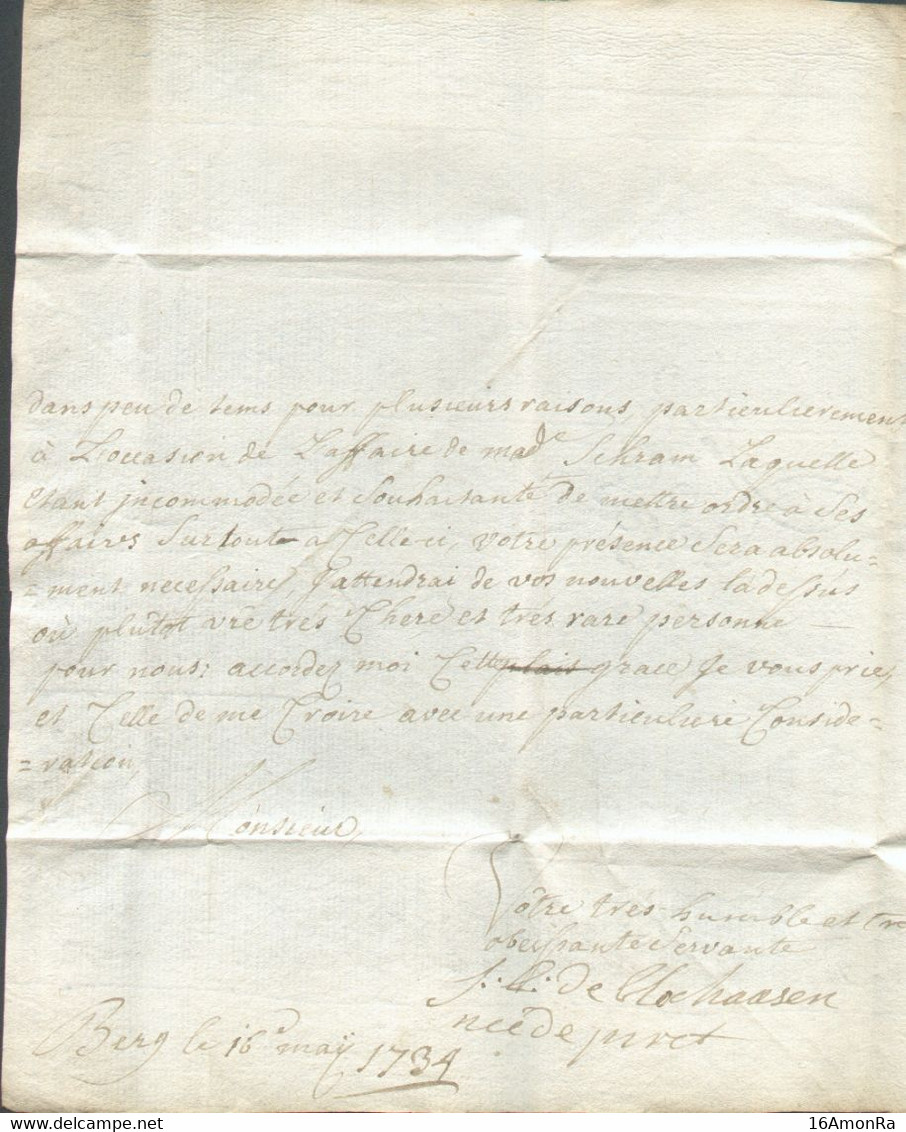 dans peu de tems pour plusieurs raisons, particulierement
à L'occasion de L'affaire de mad.e Schram Laquelle
etant jncommodée et Souhaitante de mettre ordre à Ses
affaires Surtout a Celle-ci, votre présence Sera absolu-
=ment necessaire, J'attendrai de vos nouvelles la dessus
où plûtot vre trés Chere et trés rare personne
pour nous: accordez moi Cette plait grace Je vous prie,
et Celle de me Croire avec une particuliere Conside=
=ration,
Monsieur,
Vôtre trés humble et tr
obeissante Servante
née de
Berg le 16e maÿ 1734
16AmonRa